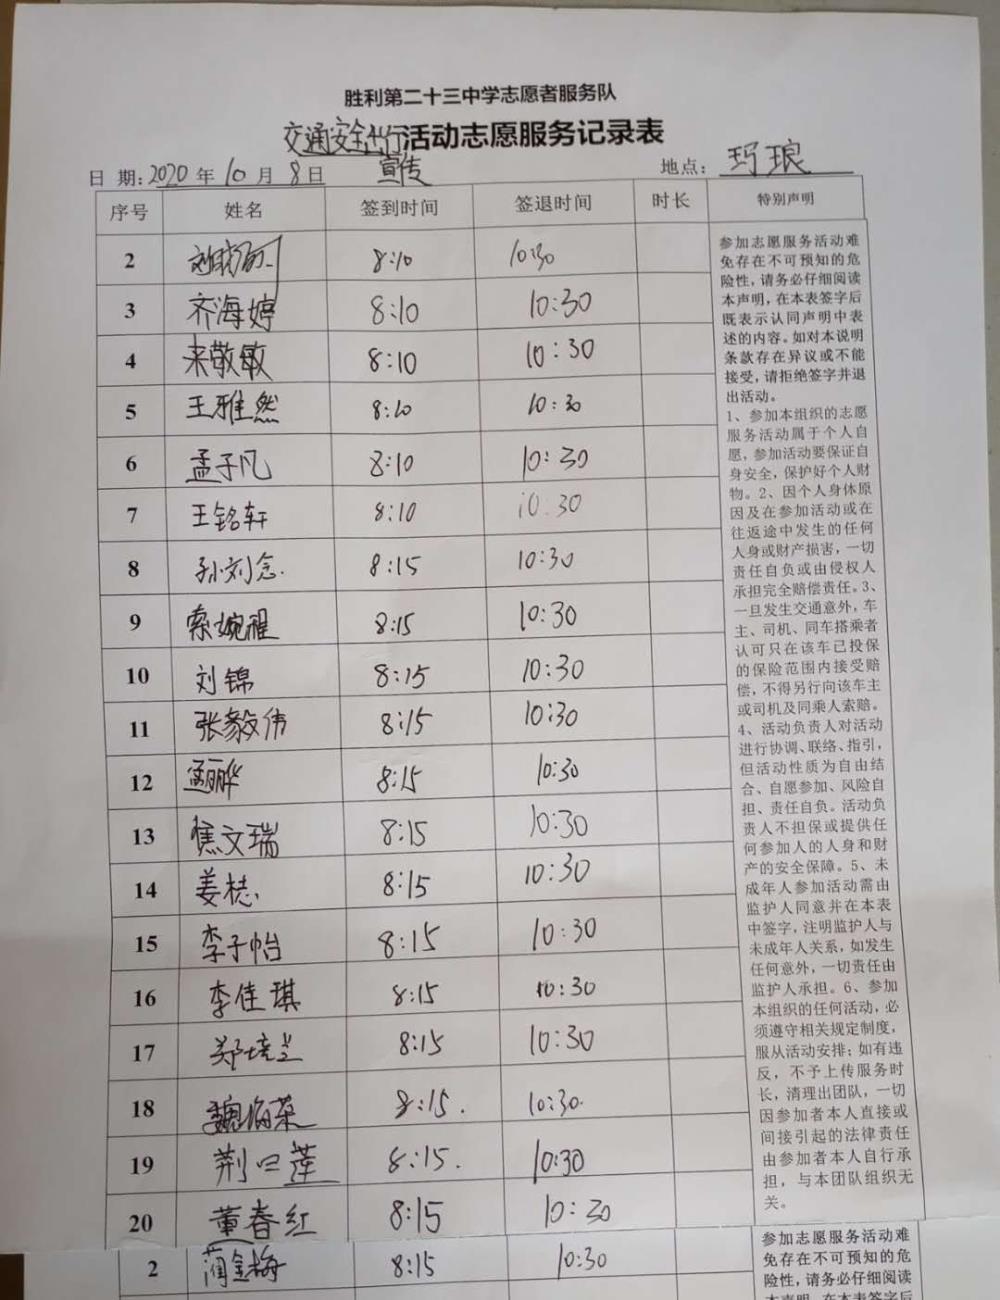 胜利第二十三中学志愿者服务队
交通安全出行活动志愿服务记录表
宣传
日 期:2020年10月8日 地点: 玛琅
序号 姓名 签到时间 签退时间 时长 特别声明
2 8:10 10:30
3 齐海婷 8:10 10:30
4 来敬敏 8:10 10:30
5 王雅然 8:10 10:30
6 孟子凡 8:10 10:30
7 王铭轩 8:10 10:30
8 孙刘念 8:15 10:30
9 索婉瑶 8:15 10:30
10 刘锦 8:15 10:30
11 张毅伟 8:15 10:30
12 孟丽华 8:15 10:30
13 焦文瑞 8:15 10:30
14 姜梽 8:15 10:30
15 李子怡 8:15 10:30
16 李佳琪 8:15 10:30
17 郑培兰 8:15 10:30
18 8:15. 10:30.
19 荆口莲 8:15. 10:30
20 董春红 8:15 10:30
2 蔺金梅 8:15 10:30
参加志愿服务活动难
免存在不可预知的危
险性，请务必仔细阅读
本声明，在本表签字后
既表示认同声明中表
述的内容。如对本说明
条款存在异议或不能
接受，请拒绝签字并退
出活动。
1、参加本组织的志愿
服务活动属于个人自
愿，参加活动要保证自
身安全，保护好个人财
物。2、因个人身体原
因及在参加活动或在
往返途中发生的任何
人身或财产损害，一切
责任自负或由侵权人
承担完全赔偿责任。3、
一旦发生交通意外，车
主、司机、同车搭乘者
认可只在该车已投保
的保险范围内接受赔
偿，不得另行向该车主
或司机及同乘人索赔。
4、活动负责人对活动
进行协调、联络、指引，
但活动性质为自由结
合、自愿参加、风险自
担、责任自负。活动负
责人不担保或提供任
何参加人的人身和财
产的安全保障。5、未
成年人参加活动需由
监护人同意并在本表
中签字，注明监护人与
未成年人关系，如发生
任何意外，一切责任由
监护人承担。6、参加
本组织的任何活动，必
须遵守相关规定制度，
服从活动安排；如有违
反，不予上传服务时
长，清理出团队，一切
因参加者本人直接或
间接引起的法律责任
由参加者本人自行承
担，与本团队组织无
关。
参加志愿服务活动难
免存在不可预知的危
险性，请务必仔细阅读
本声明，在本表签字后